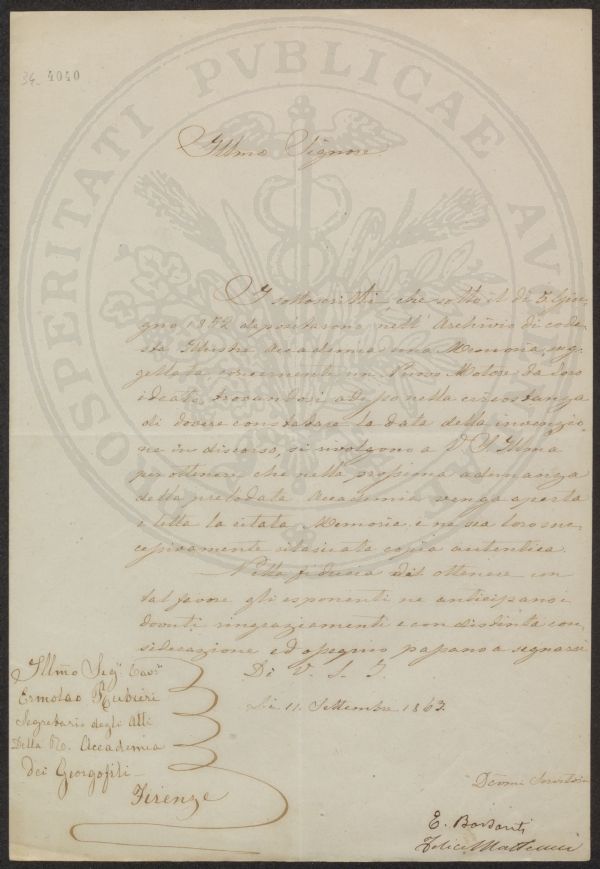 34 4040
PROSPERITATI PVBLICAE AV
Illmo Signore
I sottoscritti, che sotto il dì 5 Giu-
gno 1852 depositarono nell' Archivio di code-
sta Illustre Accademia una Memoria sug-
gellata concernente un Nuovo Motore da loro
ideato, trovandosi adesso nella circostanza
di dovere constatare la data della invenzio-
ne in discorso, si rivolgono a V. S. Illma
per ottenere che nella prossima adunanza
della prelodata Accademia venga aperta
e letta la citata Memoria, e ne sia loro suc-
cessivamente rilasciata copia autentica.
Nella fiducia di ottenere un
tal favore gli esponenti ne anticipano i
dovuti ringraziamenti e con distinta con-
siderazione ed ossequio passano a segnarsi
Di V. S. I.
Li 11. Settembre 1863.
Illmo Sigr Cavr
Ermolao Rubieri
Segretario degli Atti
Della R. Accademia
dei Georgofili
Firenze
Devmi Servitori
E. Barsanti
Felice Matteucci